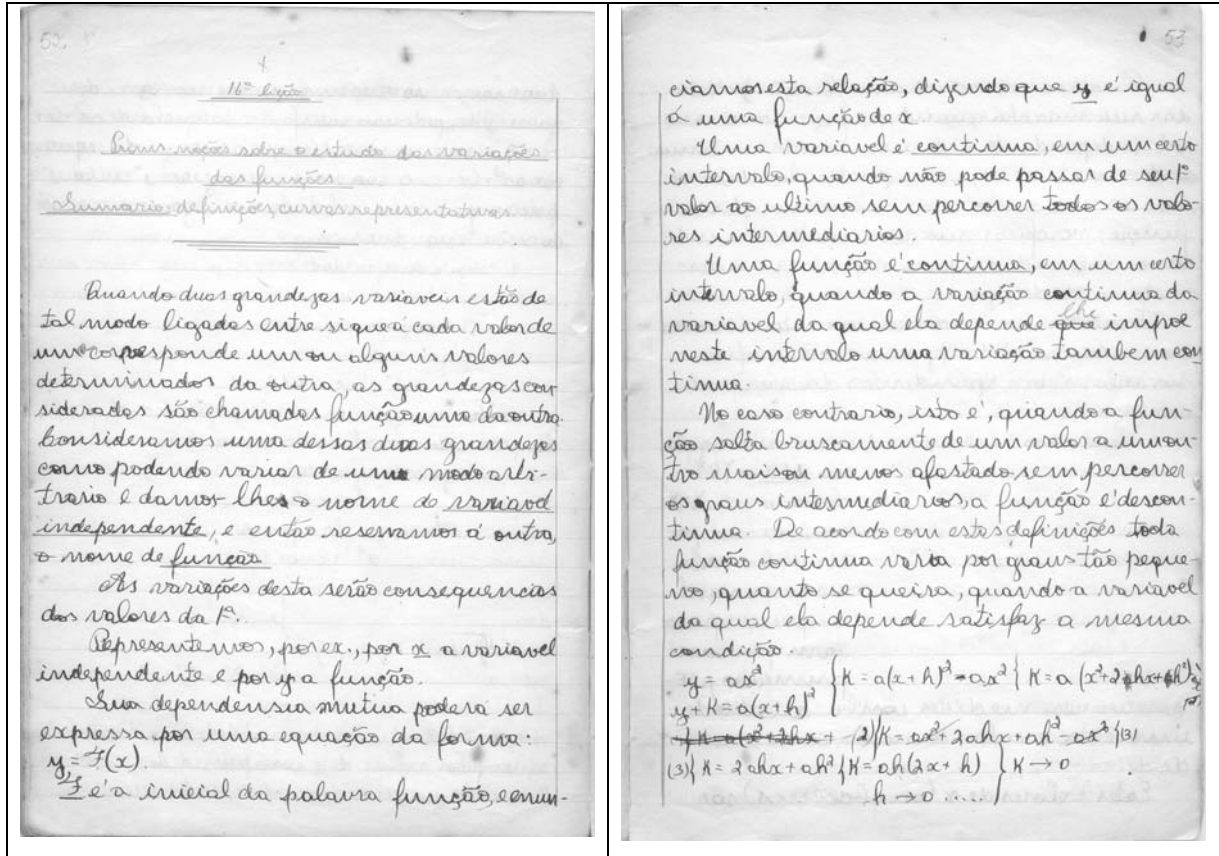 52.
16ª lição
Prems noções sobre o estudo das variações
das funções
Sumario: definições, curvas representativas
Quando duas grandezas variaveis estão de
tal modo ligadas entre si que á cada valor de
um corresponde um ou alguns valores
determinados da outra, as grandezas con
sideradas são chamadas função uma da outra.
Consideramos uma dessas duas grandezas
como podendo variar de um modo arbi-
trario e damos-lhes o nome de variavel
independente, e então reservamos á outra,
o nome de função
As variações desta serão consequencias
dos valores da 1ª.
Representemos, por ex., por x a variavel
independente e por y a função.
Sua dependensia mutua poderá ser
expressa por uma equação da forma:
y = F(x).
F é a inicial da palavra função, e enun-
53
ciamos esta relação, dizendo que y é igual
á uma função de x
Uma variavel é continua, em um certo
intervalo, quando não pode passar de seu 1º
valor ao ultimo sem percorrer todos os valo-
res intermediarios.
Uma função é continua, em um certo
intervalo, quando a variação continua da
variavel da qual ela depende lhe impõe
neste intervalo uma variação tambem con
tinua.
No caso contrario, isto é, quando a fun-
ção salta bruscamente de um valor a um ou-
tro mais ou menos afastado sem percorrer
os graus intermediarios, a função é descon-
tinua. De acordo com estas definições toda
função continua varia por graus tão peque-
no, quanto se queira, quando a variavel
da qual ela depende satisfaz a mesma
condição.
y = ax² { K = a(x+h)² - ax² { K = a(x²+2hx+h²)
y+K = a(x+h)²
{ K = a(x²+2hx+ (2){K = ax²+2ahx+ah²-ax² {(3)
(3){ K = 2ahx+ah² {K = ah(2x+h) } K → 0
h → 0 .... }